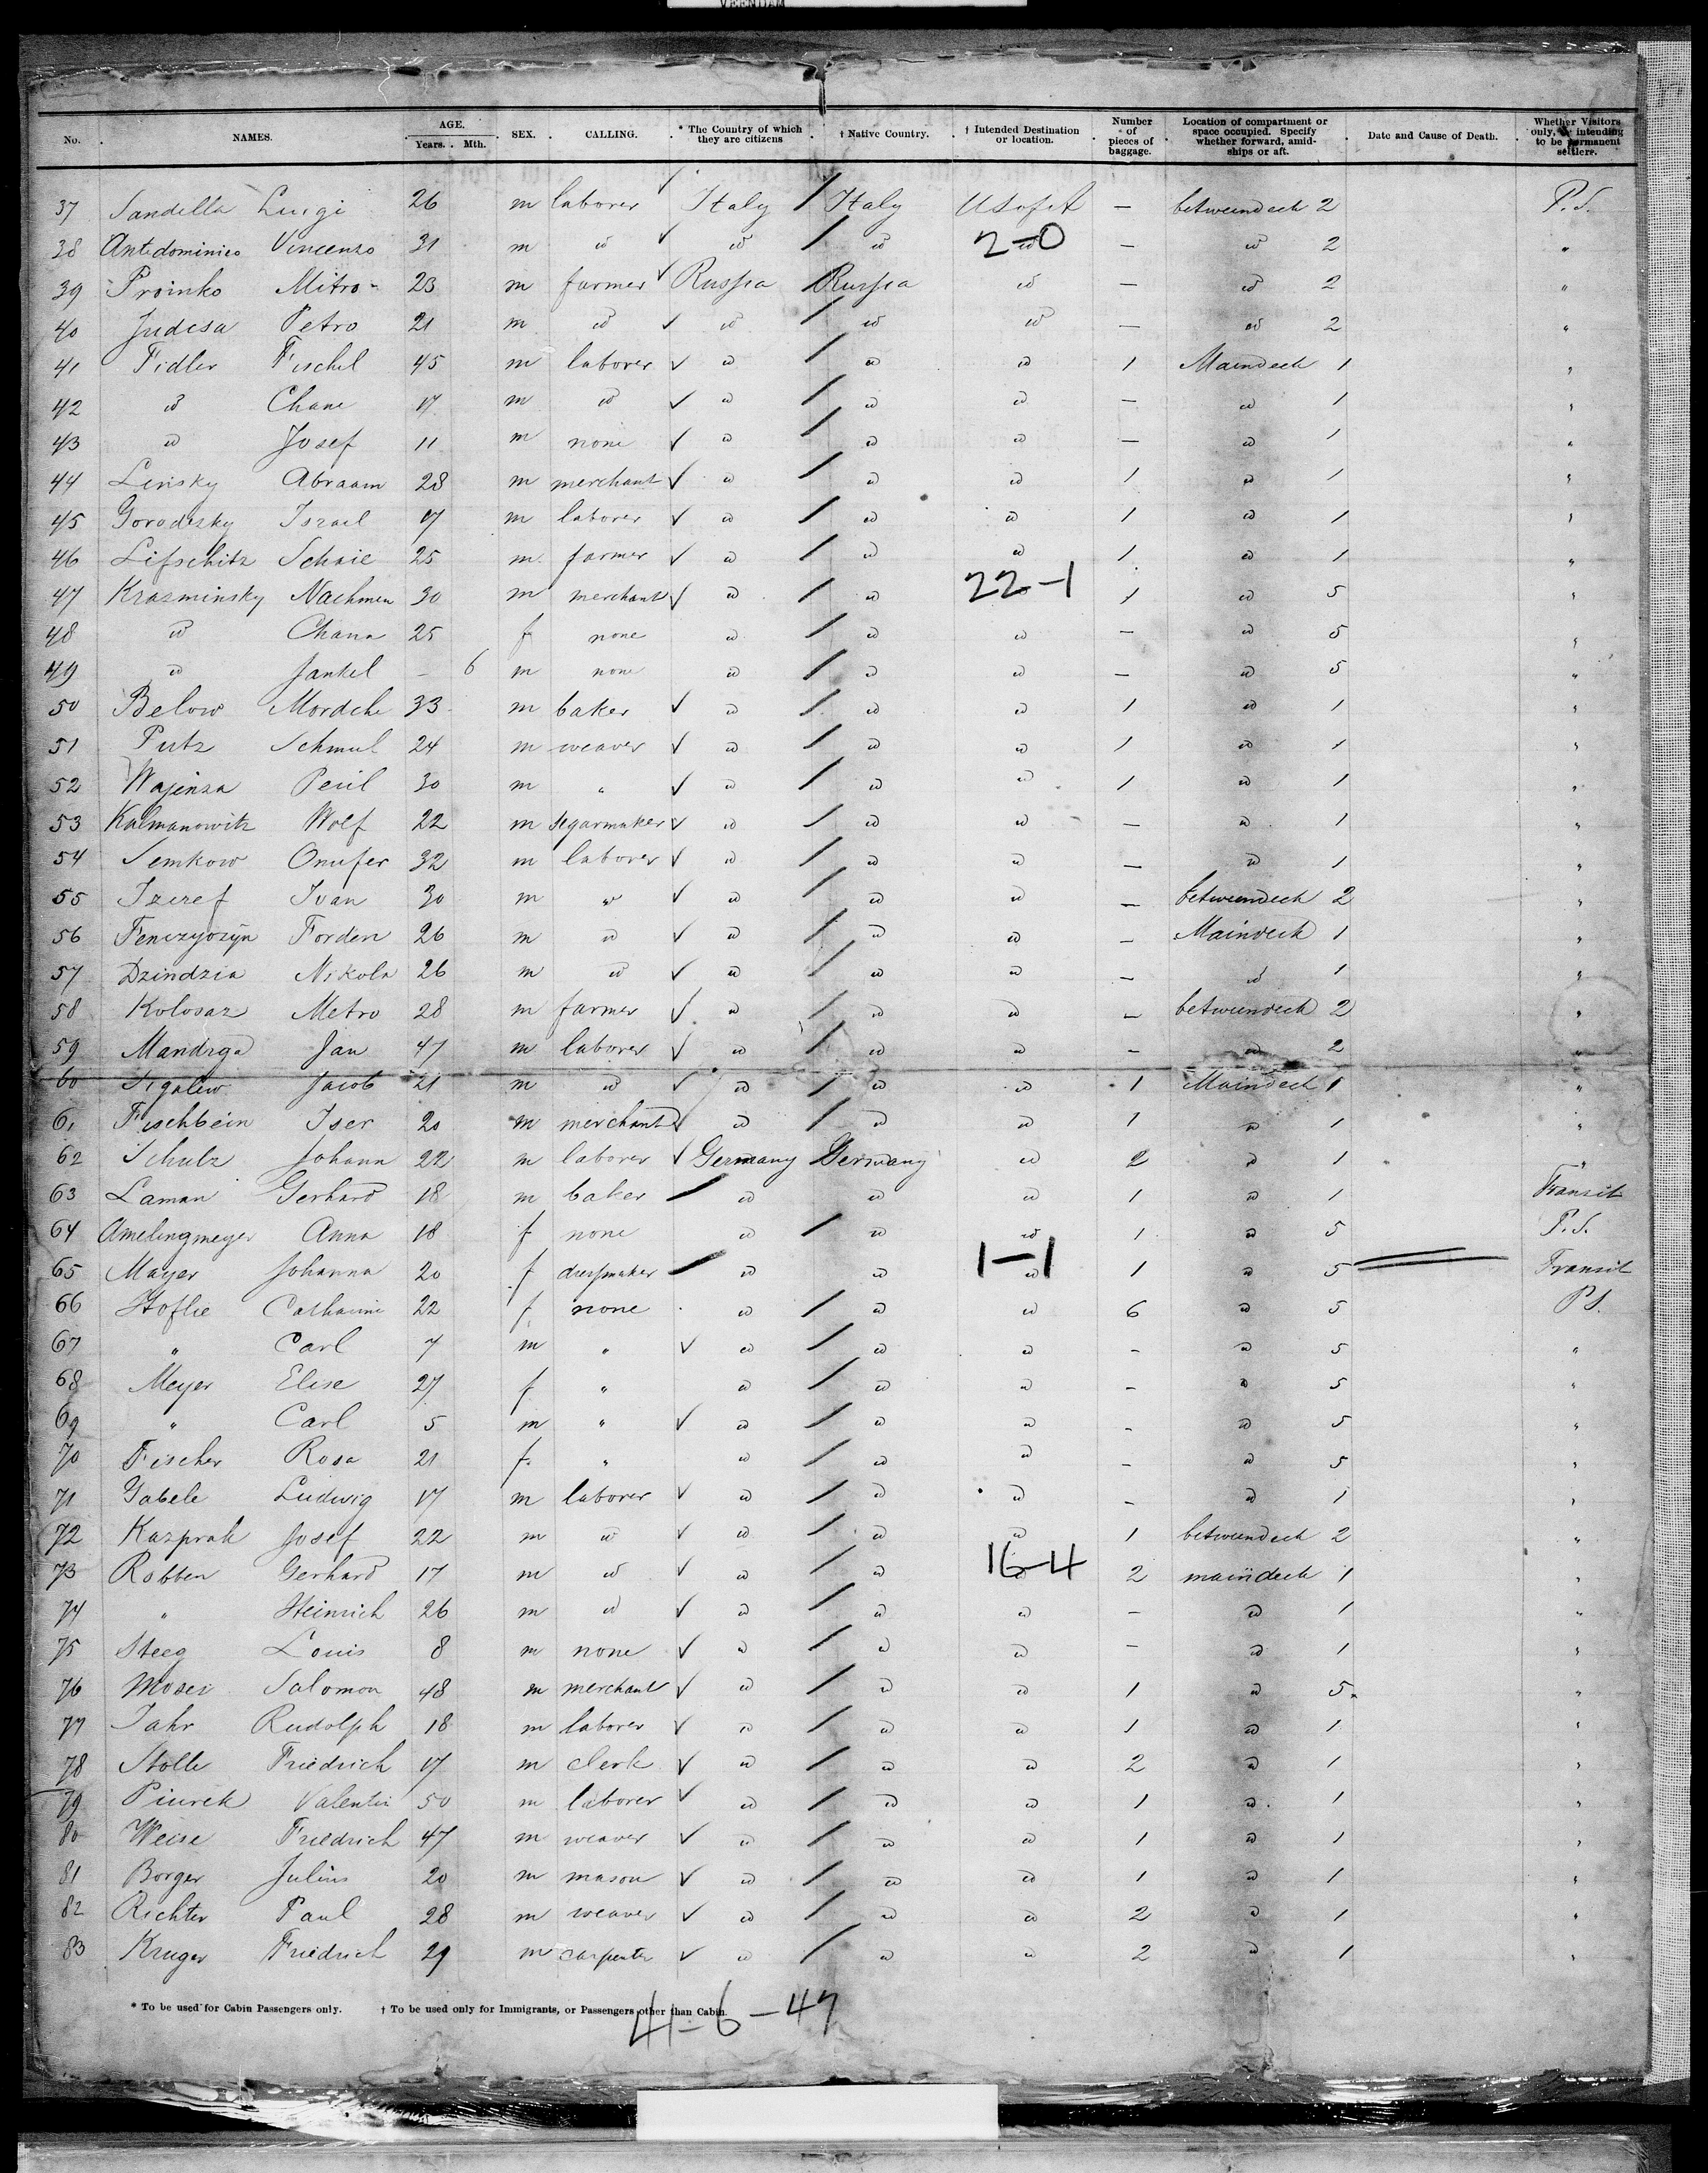 VEENDAM
No. NAMES. AGE. Years. Mth. SEX. CALLING. * The Country of which they are citizens † Native Country. † Intended Destination or location. Number of pieces of baggage. Location of compartment or space occupied. Specify whether forward, amidships or aft. Date and Cause of Death. Whether Visitors only, or intending to be permanent settlers.
37 Sandella Luigi 26 m laborer Italy Italy U S of A — betweendeck 2 P.S.
38 Antidominico Vincenzo 31 m id id id 2-0 id — id 2 "
39 Proinko Mitro 23 m farmer Russia Russia id — id 2 "
40 Judesa Petro 21 m id id id id — id 2 "
41 Fidler Fischel 45 m laborer id id id 1 Maindeck 1 "
42 id Chane 17 m id id id id — id 1 "
43 id Josef 11 m none id id id — id 1 "
44 Linsky Abraam 28 m merchant id id id 1 id 1 "
45 Gorodezky Israel 17 m laborer id id id 1 id 1 "
46 Lifschitz Schaie 25 m farmer id id id 1 id 1 "
47 Krasminsky Nachmen 30 m merchant id id 22-1 1 id 5 "
48 id Chana 25 f none id id id — id 5 "
49 id Jankel — 6 m none id id id — id 5 "
50 Below Mordche 33 m baker id id id 1 id 1 "
51 Putz Schmul 24 m weaver id id id 1 id 1 "
52 Wajinza Peril 30 m " id id id 1 id 1 "
53 Kalmanowitz Wolf 22 m segarmaker id id id — id 1 "
54 Semkow Onufer 32 m laborer id id id — id 1 "
55 Izeref Ivan 30 m " id id id — betweendeck 2 "
56 Fenczyoszyn Forden 26 m id id id id — Maindeck 1 "
57 Dzindzia Nikola 26 m id id id id — id 1 "
58 Kolosaz Metro 28 m farmer id id id — betweendeck 2 "
59 Mandzga Jan 47 m laborer id id id — id 2 "
60 Sigalew Jacob 21 m id id id id 1 Maindeck 1 "
61 Fischbein Iser 20 m merchant id id id 1 id 1 "
62 Schulz Johann 22 m laborer Germany Germany id 2 id 1 "
63 Laman Gerhard 18 m baker id id id 1 id 1 Transit
64 Amelingmeyer Anna 18 f none id id id 1 id 5 P.S.
65 Mayer Johanna 20 f dressmaker id id 1-1 id 1 id 5 Transit
66 Hoflie Catharine 22 f none id id id 6 id 5 P S.
67 " Carl 7 m " id id id - id 5 "
68 Meyer Elise 27 f " id id id - id 5 "
69 " Carl 5 m " id id id - id 5 "
70 Fischer Rosa 21 f. " id id id - id 5 "
71 Gabele Ludwig 17 m laborer id id id - id 1 "
72 Kazprak Josef 22 m id id id id 1 betweendeck 2 "
73 Robben Gerhard 17 m id id id 16-4 2 maindeck 1 "
74 " Heinrich 26 m id id id id - id 1 "
75 Steeg Louis 8 m none id id id - id 1 "
76 Moser Salomon 48 m merchant id id id 1 id 5 "
77 Jahr Rudolph 18 m laborer id id id 1 id 1 "
78 Stolle Friedrich 17 m clerk id id id 2 id 1 "
79 Piurek Valentin 50 m laborer id id id 1 id 1 "
80 Weise Friedrich 47 m weaver id id id 1 id 1 "
81 Borger Julius 20 m mason id id id 1 id 1 "
82 Richter Paul 28 m weaver id id id 2 id 1 "
83 Kruger Friedrich 29 m carpenter id id id 2 id 1 "
* To be used for Cabin Passengers only. † To be used only for Immigrants, or Passengers other than Cabin.
41-6-47